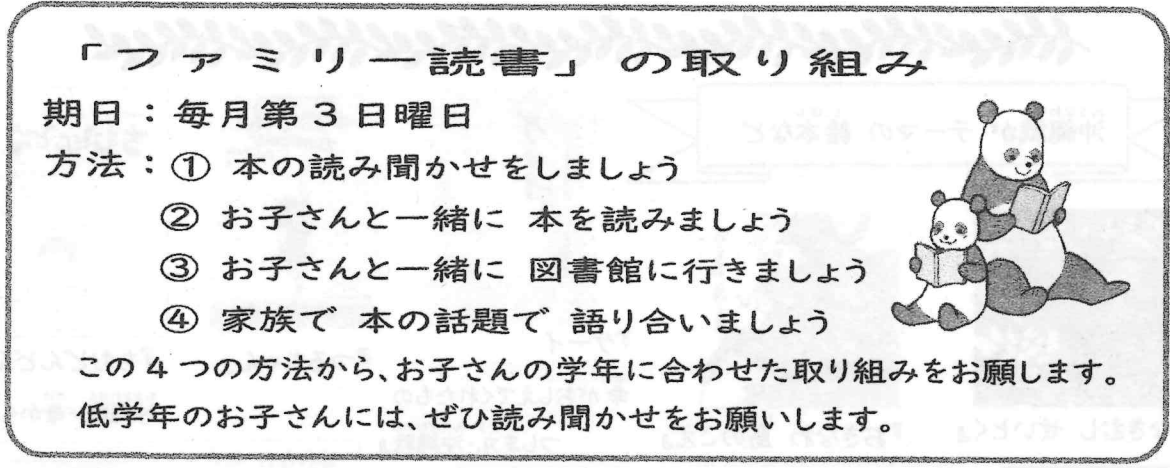 「ファミリー読書」の取り組み
期日：毎月第３日曜日
方法：① 本の読み聞かせをしましょう
② お子さんと一緒に 本を読みましょう
③ お子さんと一緒に 図書館に行きましょう
④ 家族で 本の話題で 語り合いましょう
この４つの方法から、お子さんの学年に合わせた取り組みをお願します。
低学年のお子さんには、ぜひ読み聞かせをお願いします。